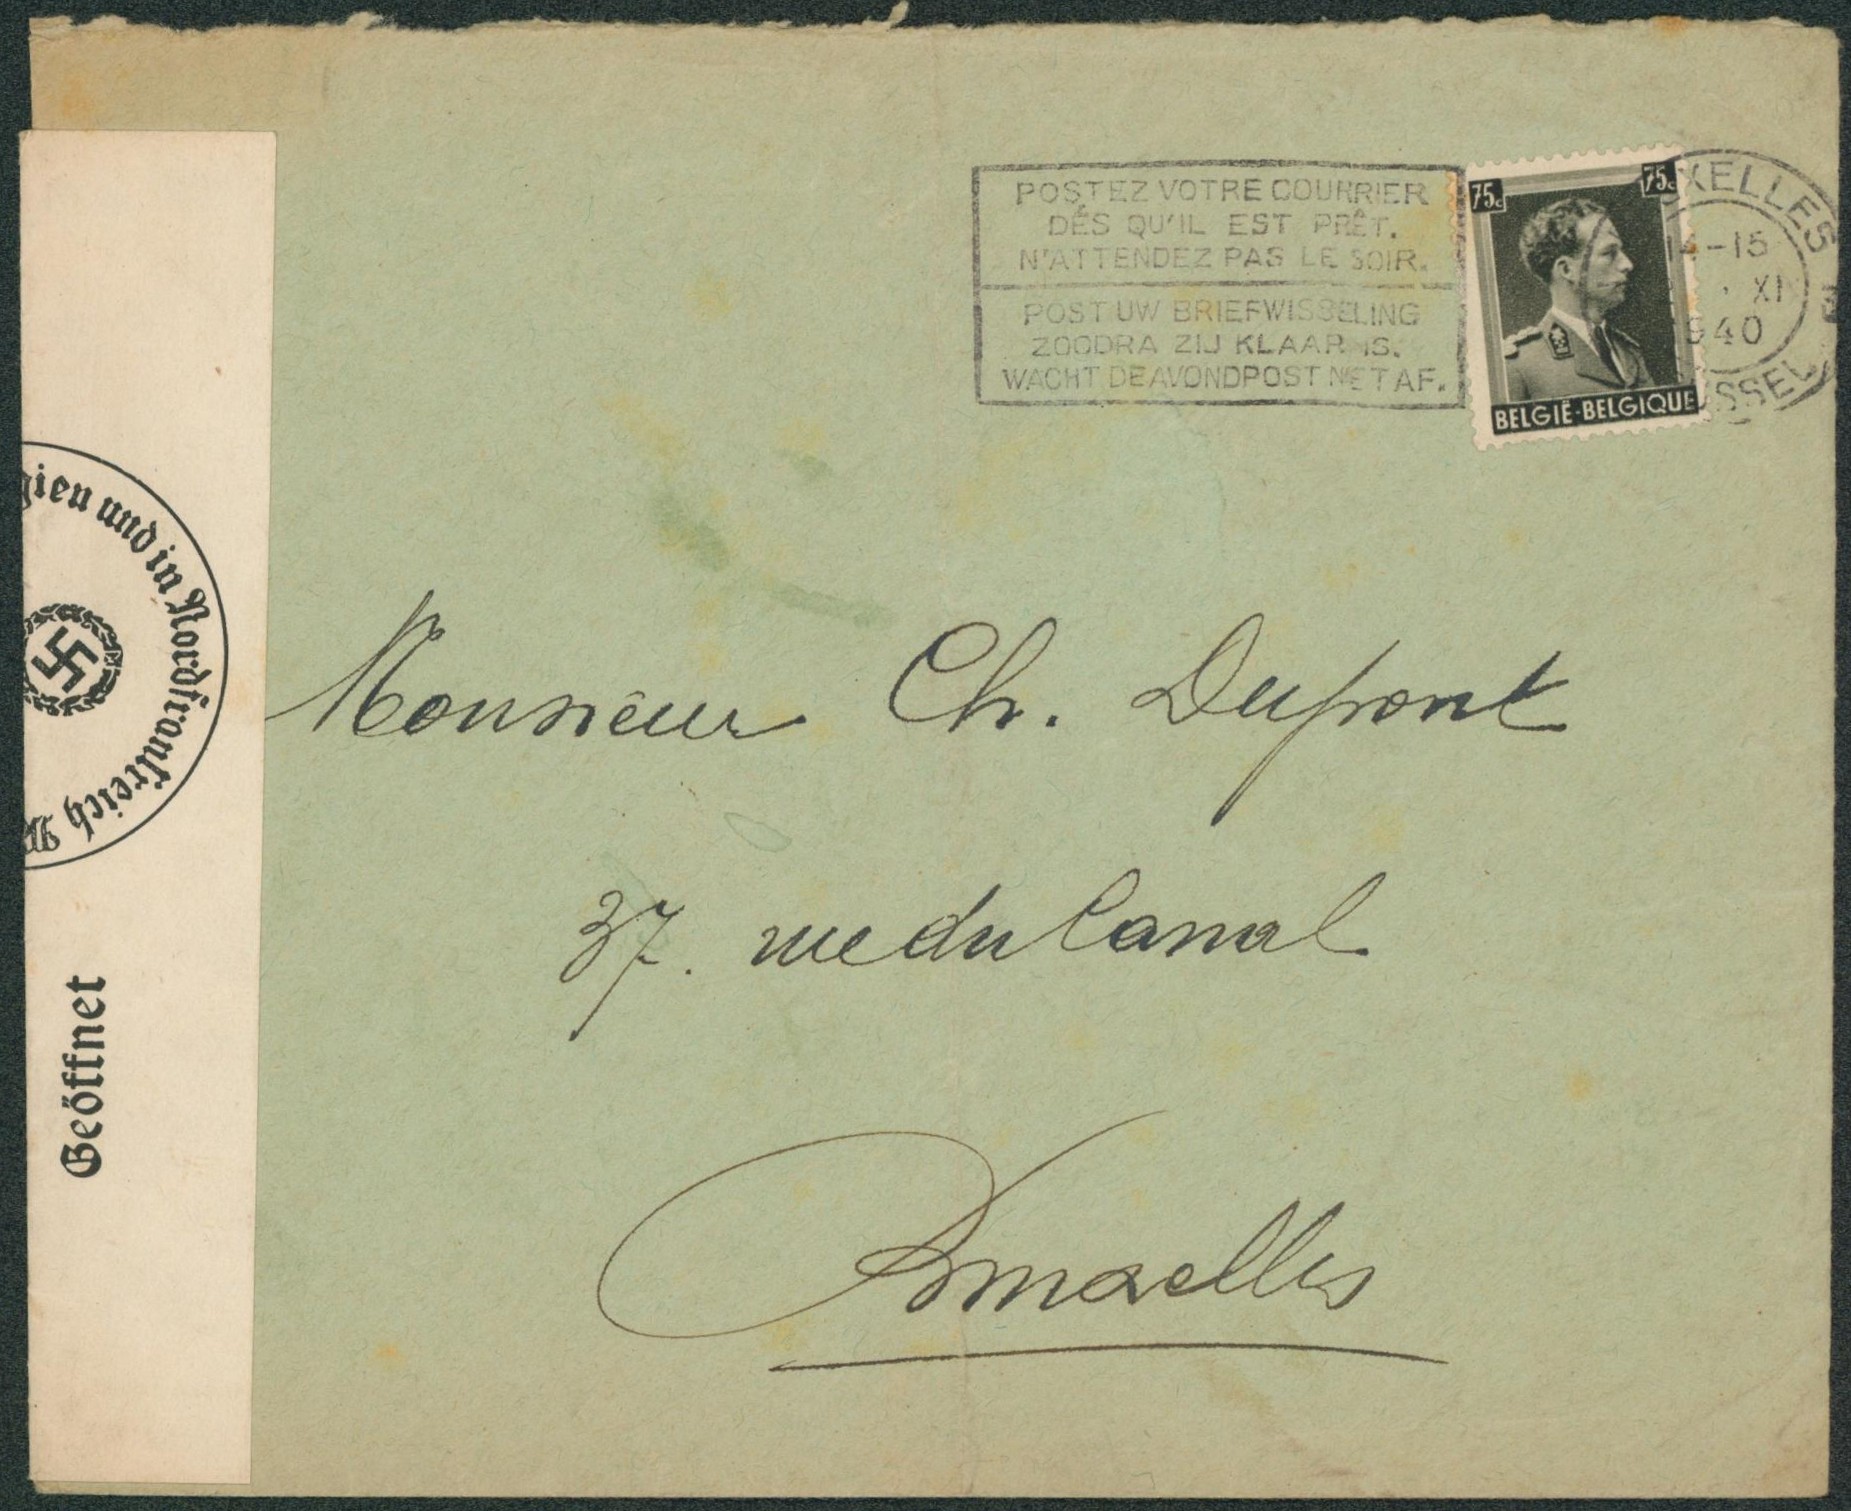 POSTEZ VOTRE COURRIER
DÈS QU'IL EST PRÊT.
N'ATTENDEZ PAS LE SOIR.
POST UW BRIEFWISSELING
ZOODRA ZIJ KLAAR IS.
WACHT DE AVONDPOST NIET AF.
75c 75c
BELGIË-BELGIQUE
XELLES
14-15
XI
1940
SSEL
gien und in Nordfrankreich
Geöffnet
Monsieur Ch. Dupont
37. rue du Canal
Bruxelles